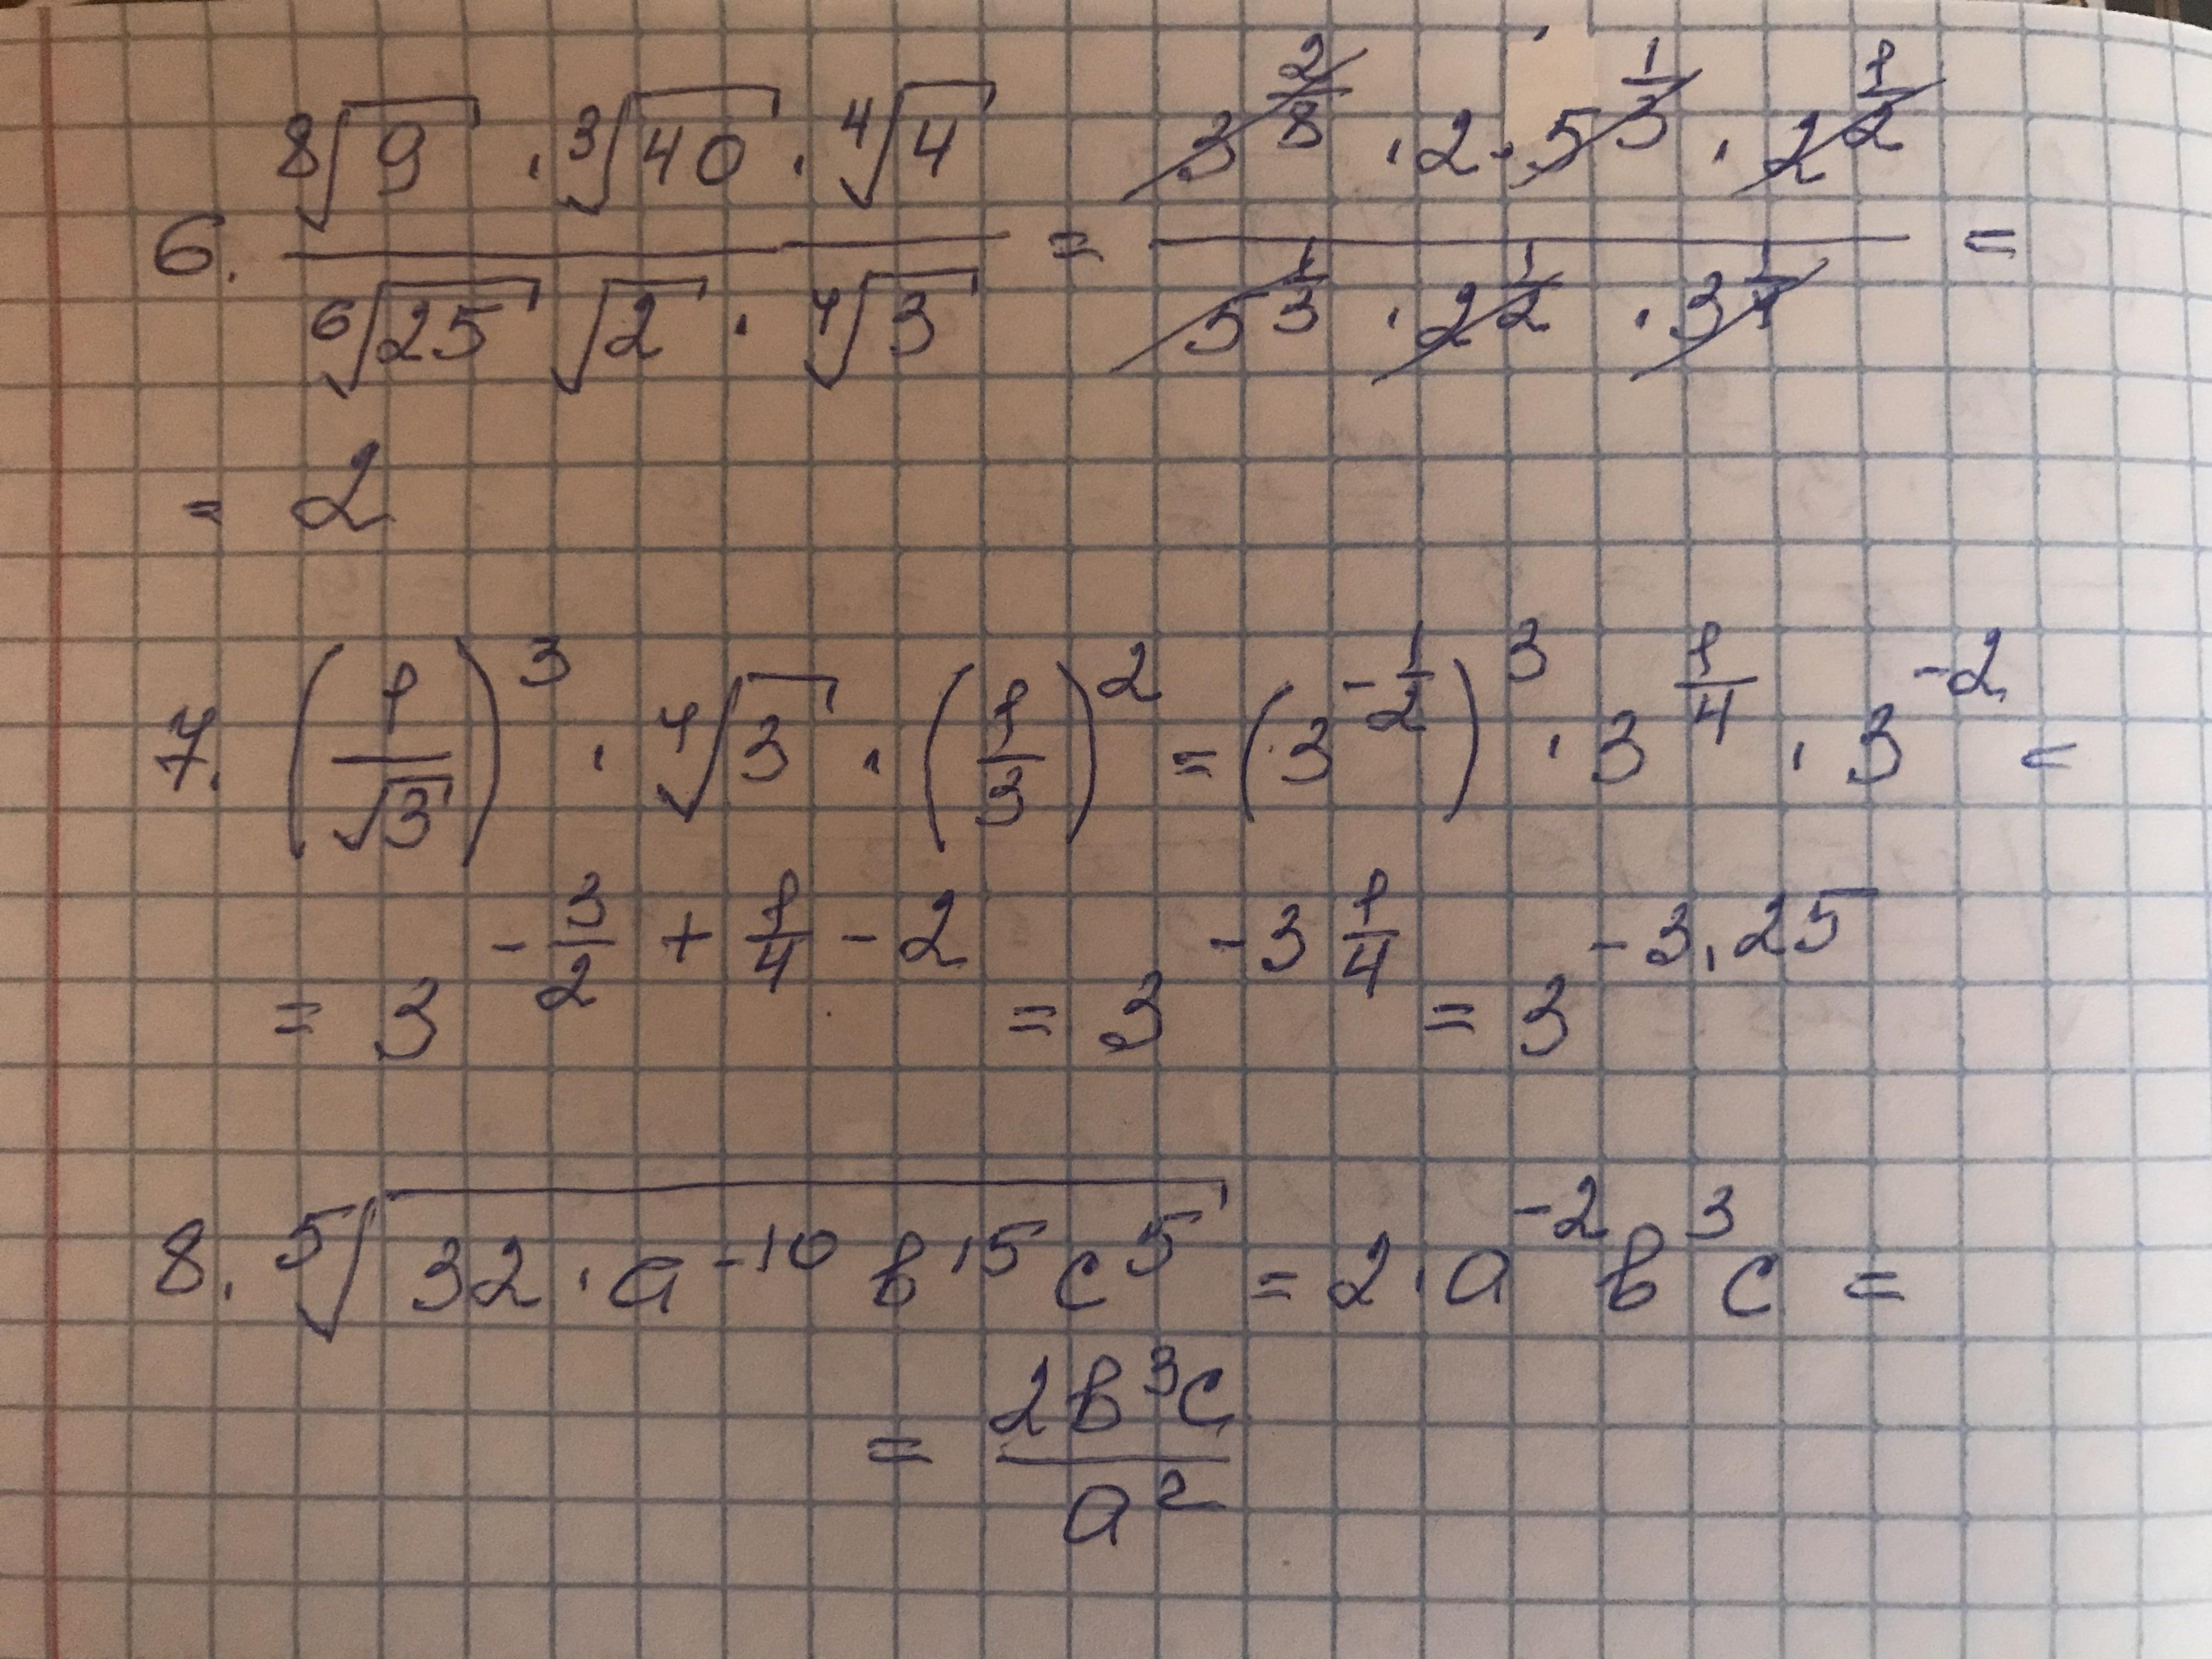 6. \frac{\sqrt[8]{9} \cdot \sqrt[3]{40} \cdot \sqrt[4]{4}}{\sqrt[6]{25} \sqrt{2} \cdot \sqrt[4]{3}} = \frac{3^{\frac{2}{8}} \cdot 2 \cdot 5^{\frac{1}{3}} \cdot 2^{\frac{1}{2}}}{5^{\frac{1}{3}} \cdot 2^{\frac{1}{2}} \cdot 3^{\frac{1}{4}}} =
= 2
7. \left(\frac{1}{\sqrt{3}}\right)^3 \cdot \sqrt[4]{3} \cdot \left(\frac{1}{3}\right)^2 = \left(3^{-\frac{1}{2}}\right)^3 \cdot 3^{\frac{1}{4}} \cdot 3^{-2} =
= 3^{-\frac{3}{2} + \frac{1}{4} - 2} = 3^{-3\frac{1}{4}} = 3^{-3,25}
8. \sqrt[5]{32 \cdot a^{-10} b^{15} c^5} = 2 \cdot a^{-2} b^3 c =
= \frac{2b^3c}{a^2}